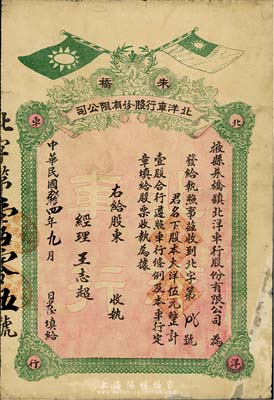 朱橋
北洋車行股份有限公司
北
東
洋
行
掖縣朱橋鎮北洋車行股份有限公司 為
發給執照事茲收到北字第 號
君名下股本大洋伍元整計
壹股合行遵照車行條例及本車行定
章填給股票收執為據
右給股東 收執
經理 王志超
中華民國 四年九月 日 填給
北字第 壹 伍零伍號
車行